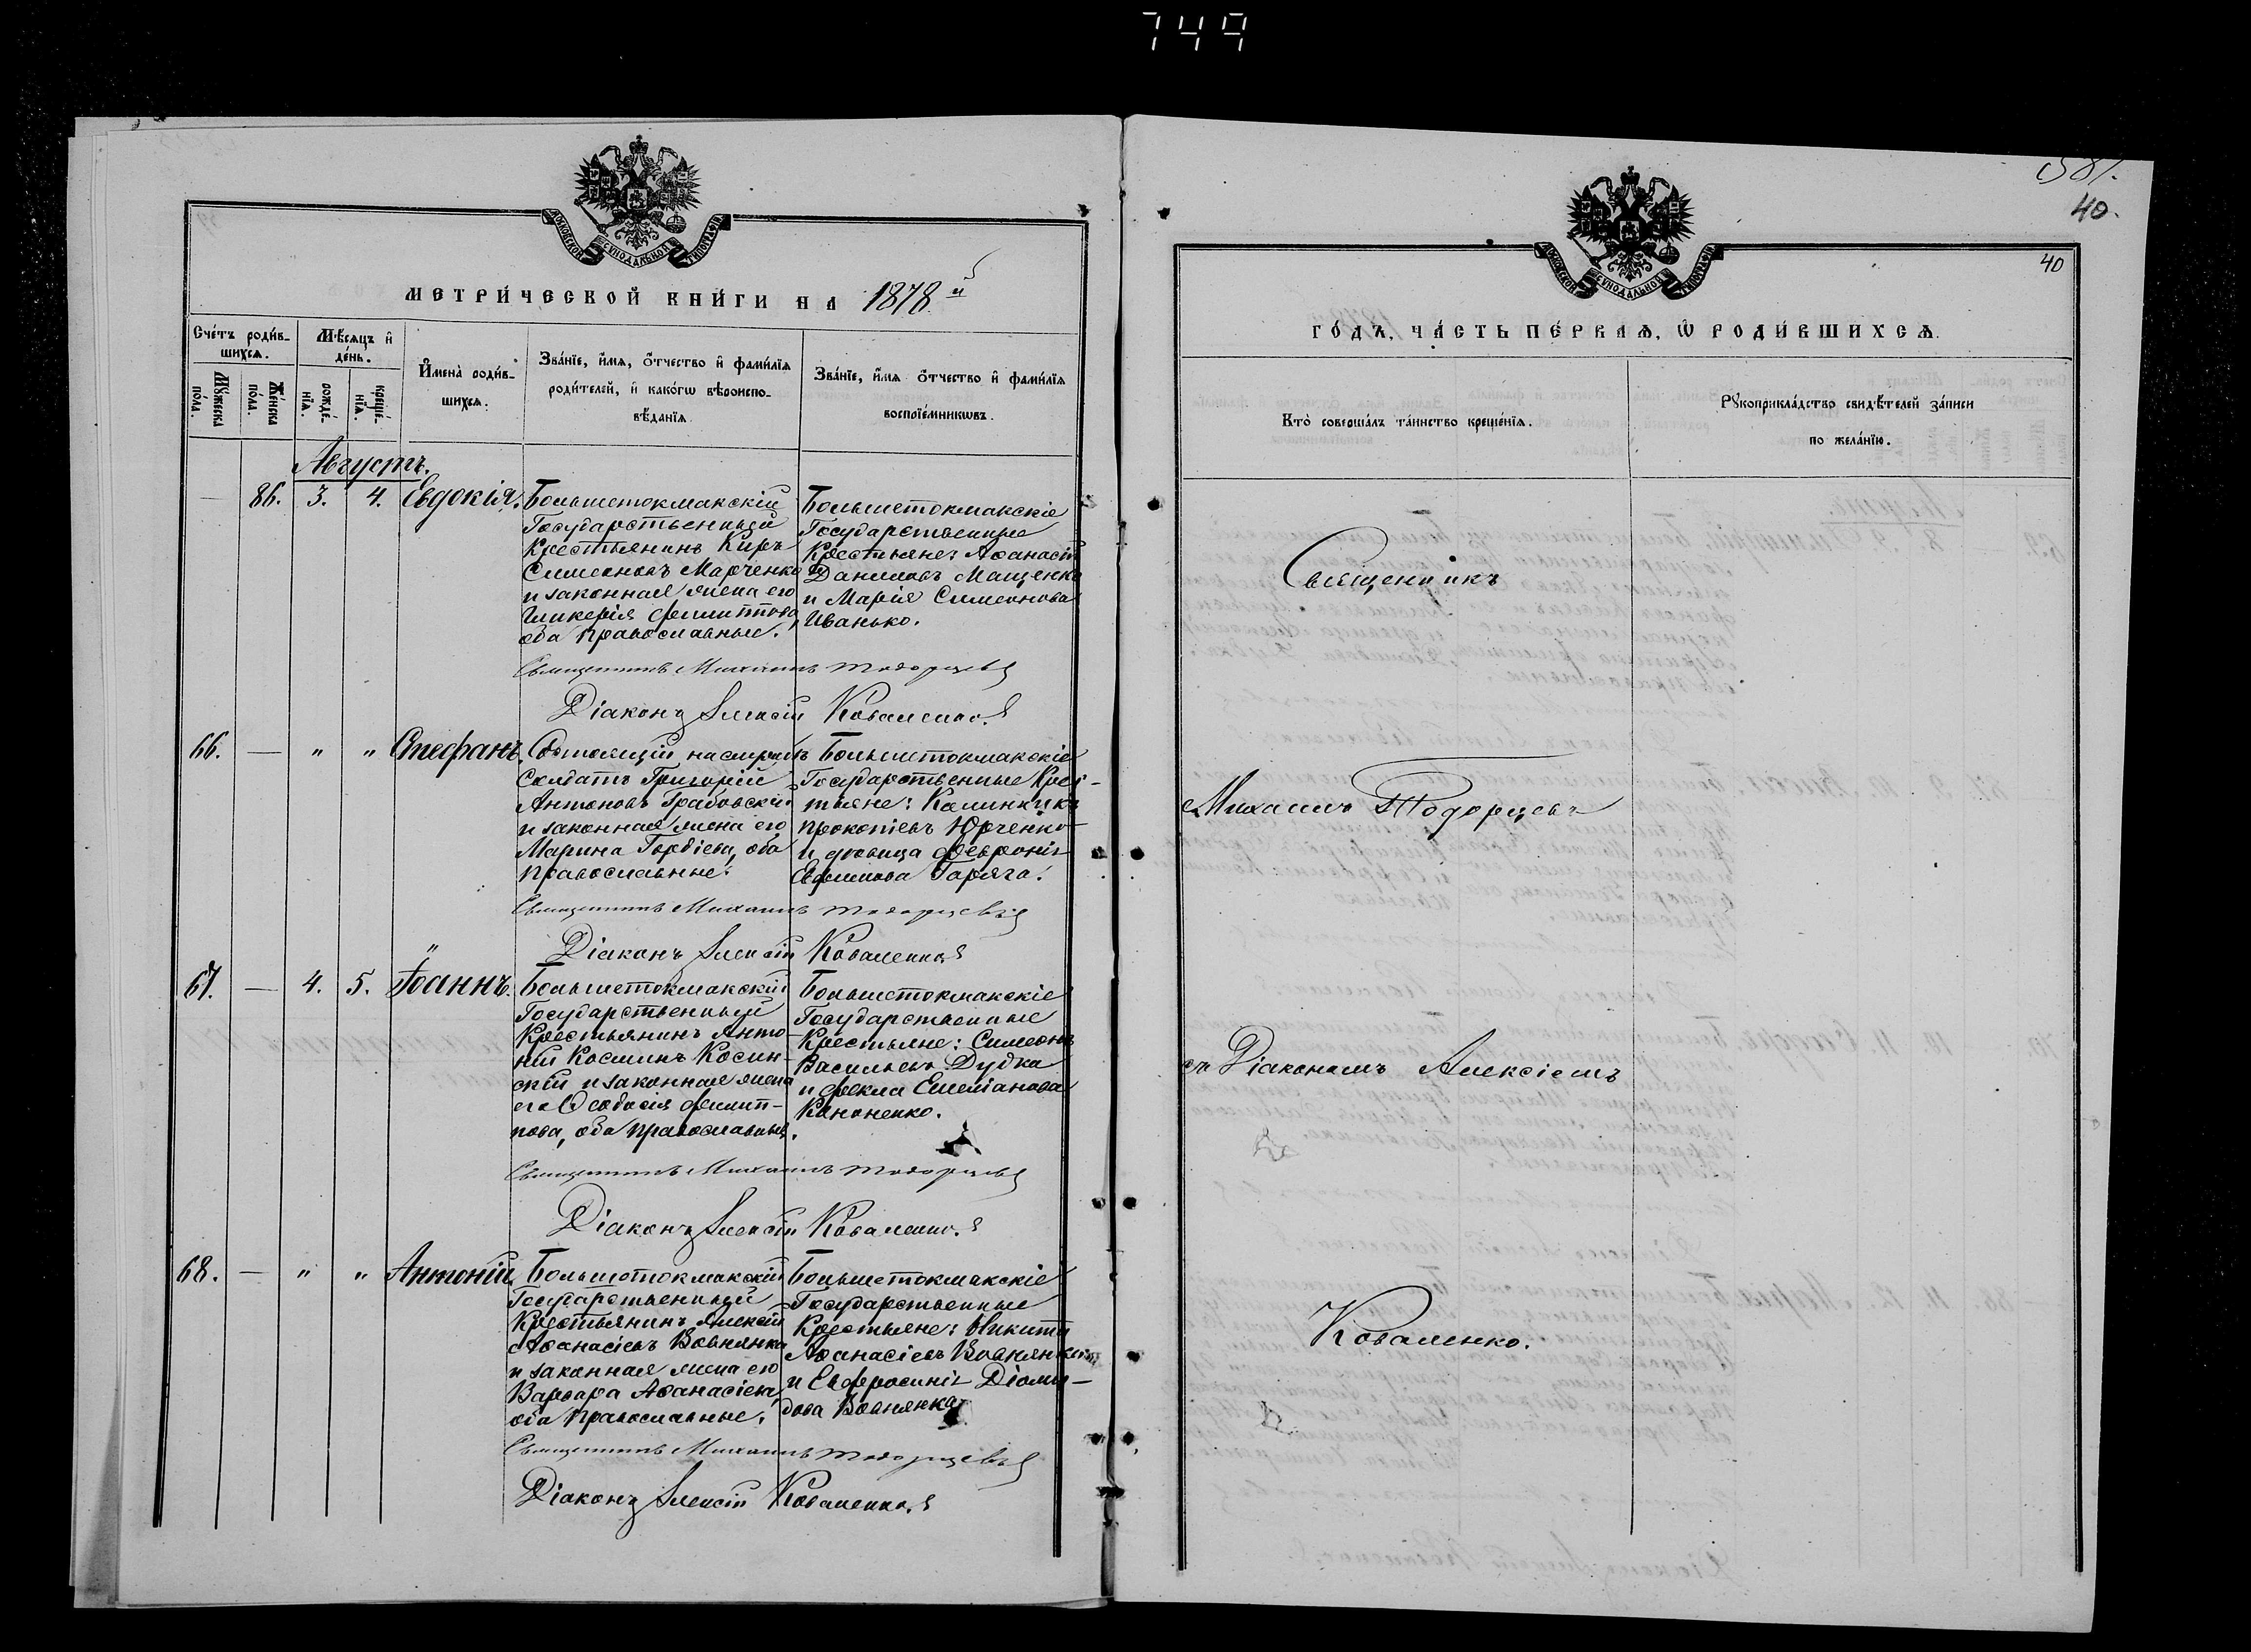 749
МОСКОВСКОЙ СѴНОДАЛЬНОЙ ТИПОГРАФІИ
МЕТРИ́ЧЕСКОЙ КНИ́ГИ НА 1878.й
Сче́тъ роди́в-
шихсѧ.
Мѣ́сяцъ и҆
де́нь.
И҆мена̀ роди́в-
шихсѧ.
Зва́нїе, и҆́мѧ, ѻ҆́тчество и҆ фами́лїѧ
роди́телей, и҆ како́гѡ вѣроиспо-
вѣ́данїѧ.
Зва́нїе, и҆́мѧ ѻ҆́тчество и҆ фами́лїѧ
воспрїе́мникѡвъ.
Мꙋ́жеска
по́ла.
Же́нска
по́ла.
рожде́-
нїѧ.
креще́-
нїѧ.
Августъ.
— 86. 3. 4. Евдокія.
Большетокмакскій
Государственный
Крестьянинъ Киръ
Симеоновъ Марченко
и законная жена его
Гликерія Филиппова,
оба православные.
Большетокмакскіе
Государственные
Крестьяне: Аѳанасій
Даниловъ Мащенко
и Марія Симеонова
Иванько.
Священникъ Михаилъ Тодорцевъ
Діаконъ Алексій Коваленко.
66. — " " Стефанъ.
Солдатъ Григорій
Антоновъ Грабовскій
и законная жена его
Марина Гордіева, оба
православные.
Большетокмакскіе
Государственные Крес-
тьяне:
Прокопіевъ Юрченко
и девица Февронія
Евфимова Гаряга.
Священникъ Михаилъ Тодорцевъ
Діаконъ Алексій Коваленко
67. — 4. 5. Іоаннъ.
Большетокмакскій
Государственный
Крестьянинъ Анто-
ній Косминъ Косин-
скій и законная жена
его Ѳеодосія Филип-
пова, оба православные.
Большетокмакскіе
Государственные
Крестьяне: Симеонъ
Васильевъ Дудка
и Фекла Емеліанова
Кононенко.
Священникъ Михаилъ Тодорцевъ
Діаконъ Алексій Коваленко.
68. — " " Антоній.
Большетокмакскій
Государственный
Крестьянинъ Алексій
Аѳанасіевъ Вовнянка
и законная жена его
Варвара Аѳанасіева,
оба православные.
Большетокмакскіе
Государственные
Крестьяне: Никита
Аѳанасіевъ
и Евфросинія Діоми-
дова Вовнянка.
Священникъ Михаилъ Тодорцевъ
Діаконъ Алексій Коваленко
581.
40.
40
МОСКОВСКОЙ СѴНОДАЛЬНОЙ ТИПОГРАФІИ
ГО́ДЪ, ЧА́СТЬ ПЕ́РВАѦ, Ѡ҆ РОДИ́ВШИХСѦ.
Кто̀ соверша́лъ та́инство креще́нїѧ.
Рꙋкоприкла́дство свидѣ́телей за́писи
по жела́нїю.
Священникъ
Михаилъ Тодорцевъ
съ Діакономъ Алексіемъ
Коваленко.